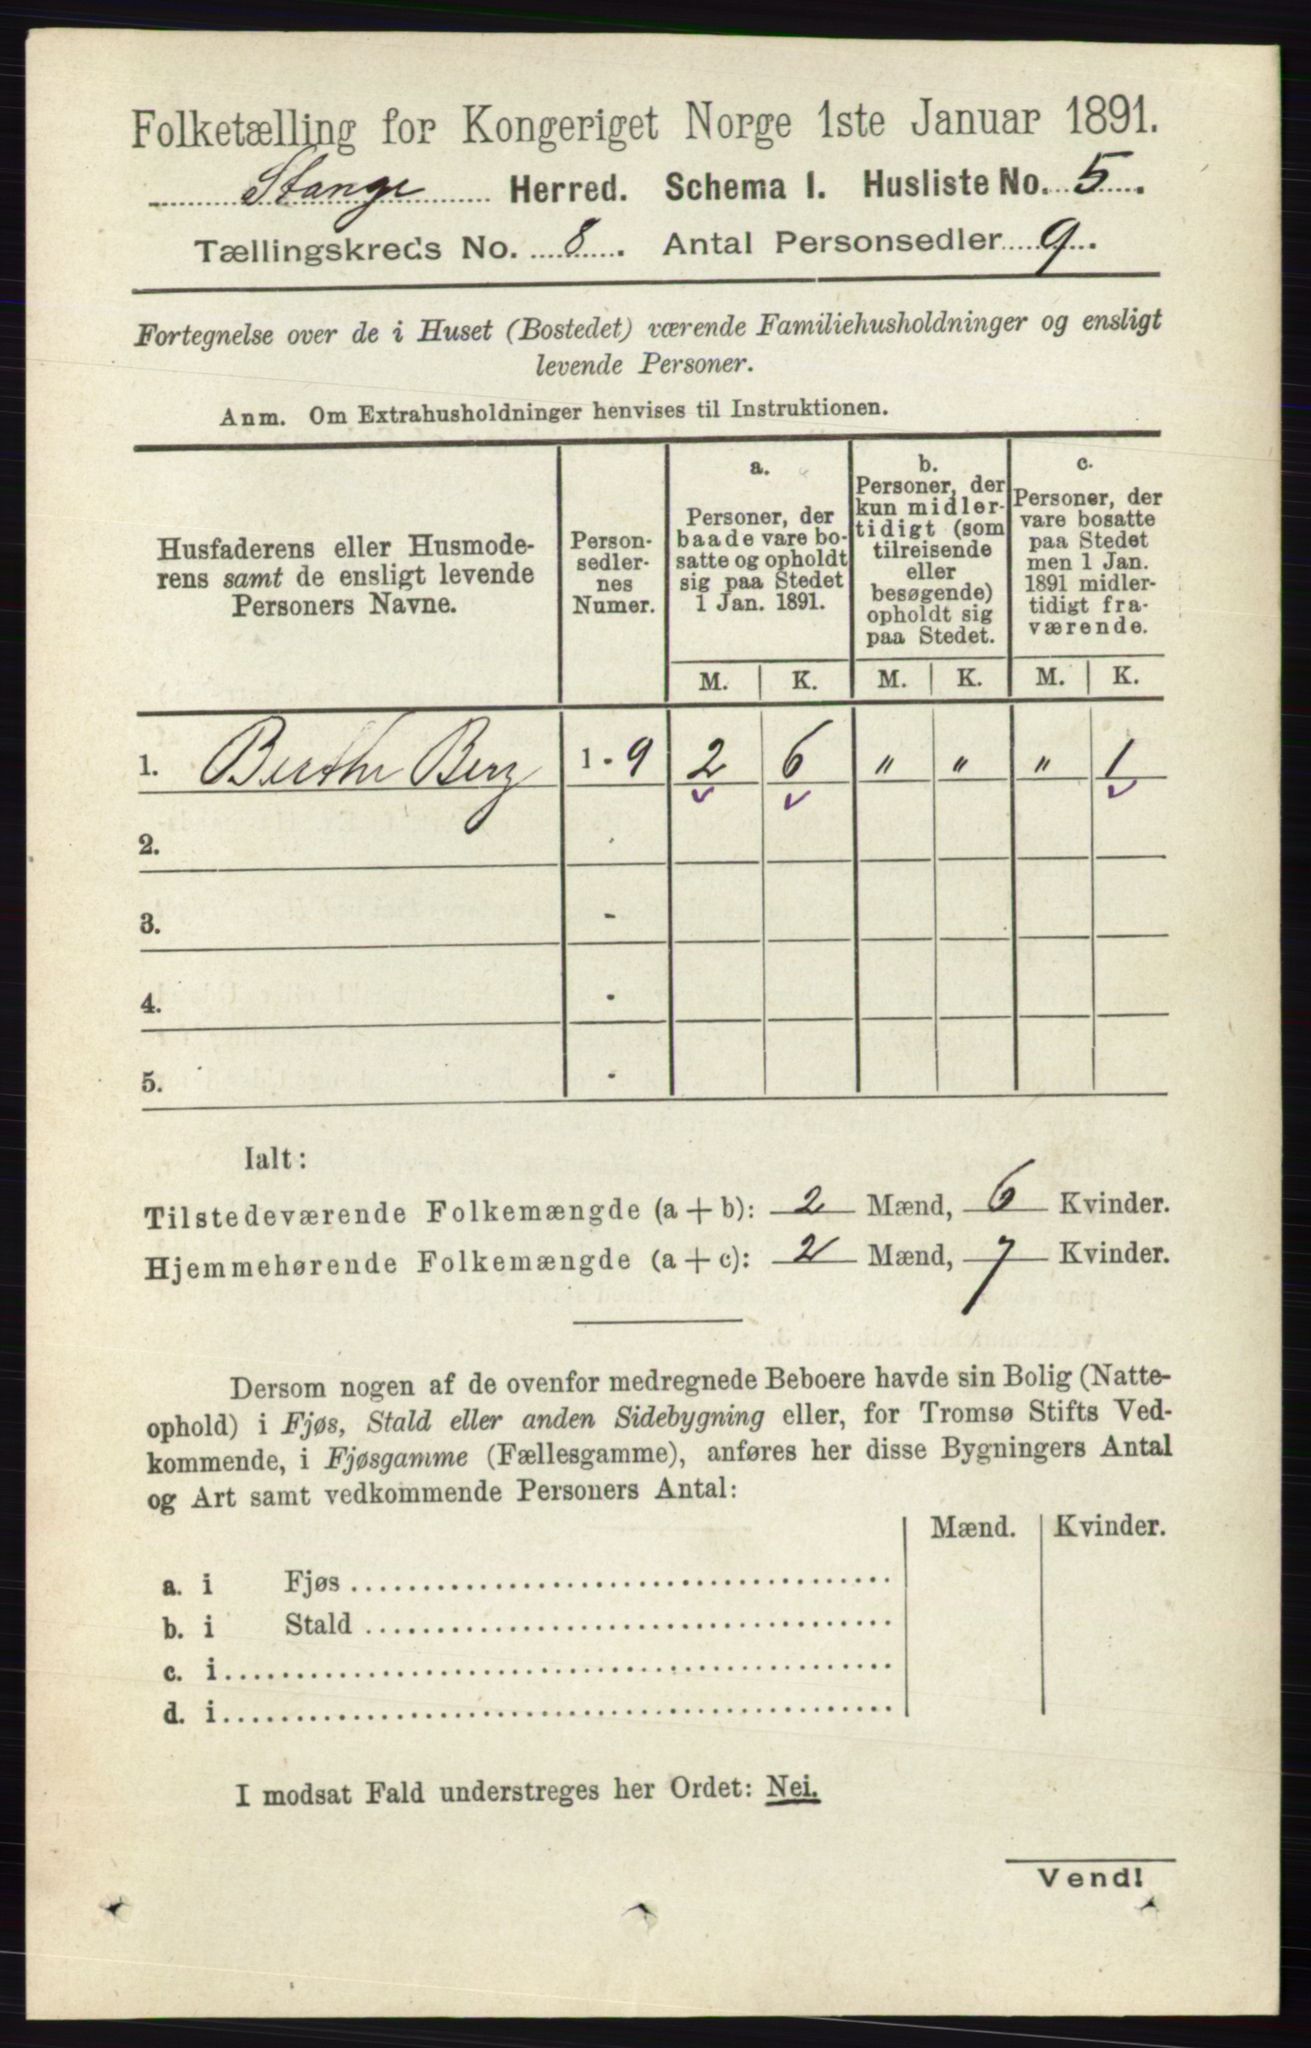 Folketælling for Kongeriget Norge 1ste Januar 1891.
Stange Herred. Schema I. Husliste No. 5.
Tællingskreds No. 8. Antal Personsedler 9.
Fortegnelse over de i Huset (Bostedet) værende Familiehusholdninger og ensligt
levende Personer.
Anm. Om Extrahusholdninger henvises til Instruktionen.
Husfaderens eller Husmode-
rens samt de ensligt levende
Personers Navne.
Person-
sedler-
nes
Numer.
a.
Personer, der
baade vare bo-
satte og opholdt
sig paa Stedet
1 Jan. 1891.
b.
Personer, der
kun midler-
tidigt (som
tilreisende
eller
besøgende)
opholdt sig
paa Stedet.
c.
Personer, der
vare bosatte
paa Stedet
men 1 Jan.
1891 midler-
tidigt fra-
værende.
M. K. M. K. M. K.
1. Berthe Berg 1 - 9 2 6 " " " 1
2.
3. -
4. -
5. -
Ialt:
Tilstedeværende Folkemængde (a + b): 2 Mænd, 6 Kvinder.
Hjemmehørende Folkemængde (a + c): 2 Mænd, 7 Kvinder.
Dersom nogen af de ovenfor medregnede Beboere havde sin Bolig (Natte-
ophold) i Fjøs, Stald eller anden Sidebygning eller, for Tromsø Stifts Ved-
kommende, i Fjøsgamme (Fællesgamme), anføres her disse Bygningers Antal
og Art samt vedkommende Personers Antal:
Mænd. Kvinder.
a. i Fjøs
b. i Stald
c. i
d. i
I modsat Fald understreges her Ordet: Nei.
Vend!